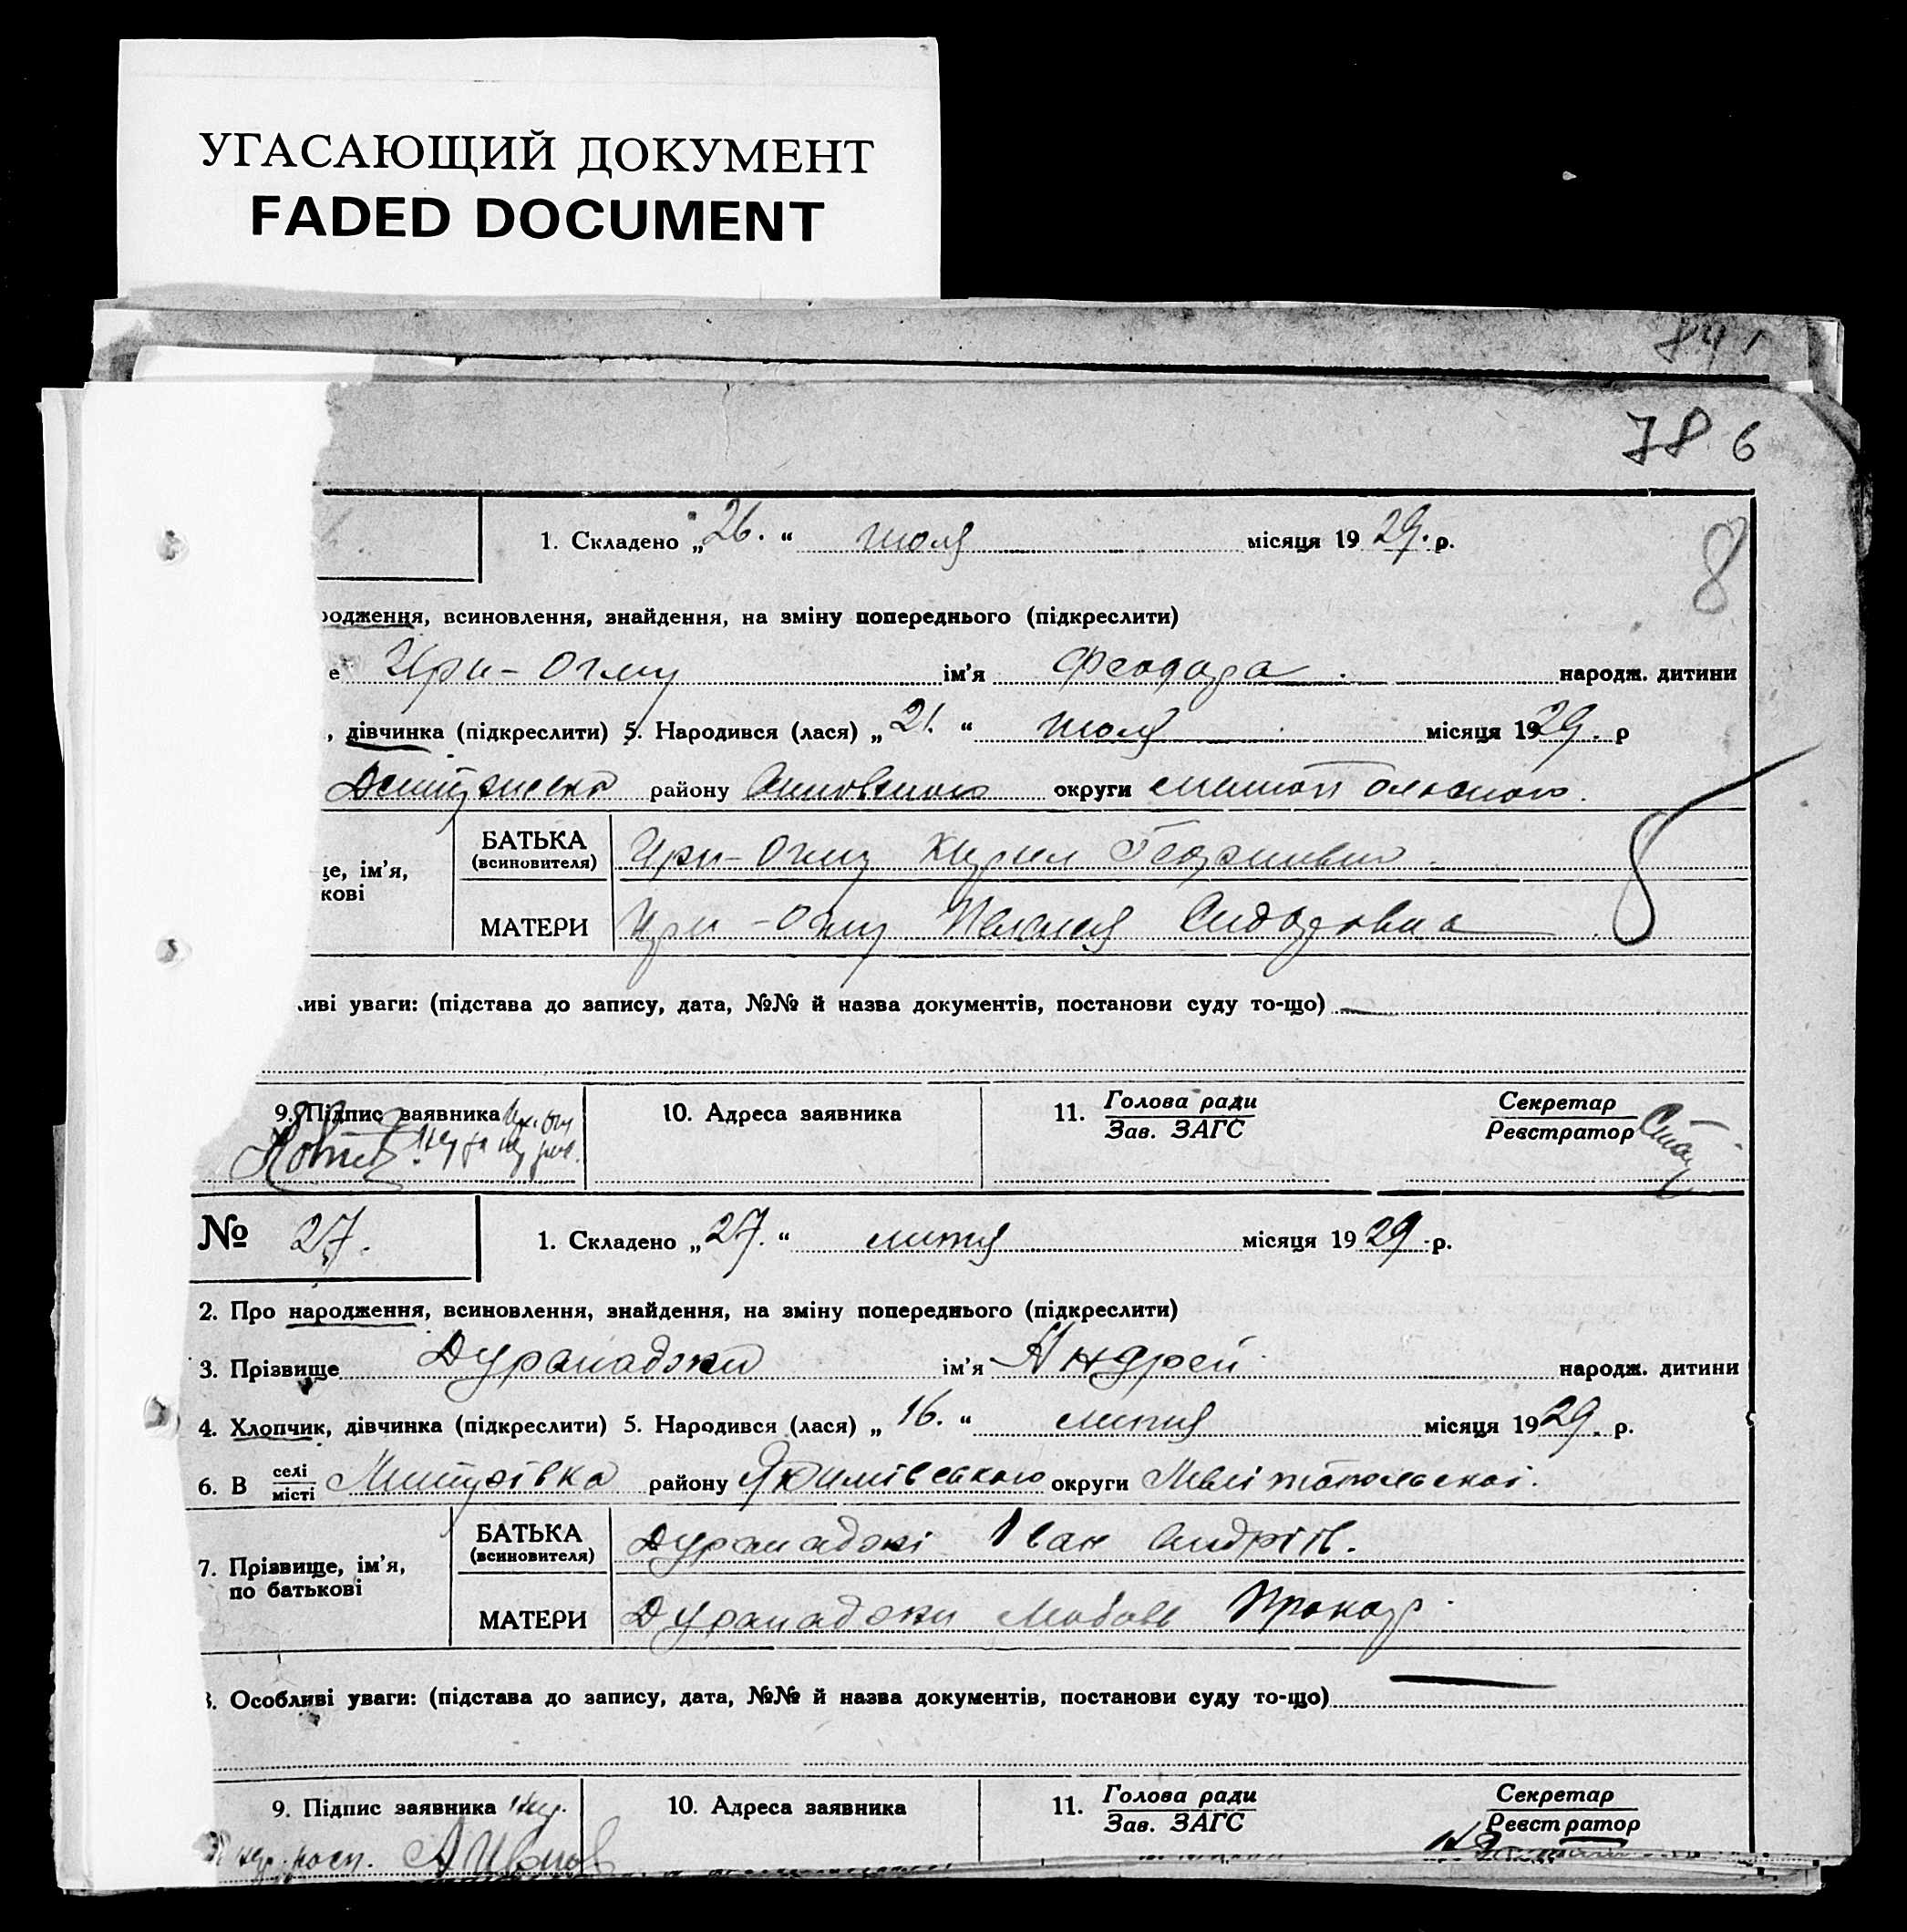 УГАСАЮЩИЙ ДОКУМЕНТ
FADED DOCUMENT
841
78 6
8
1. Складено „26.“ июля місяця 1929. р.
родження, всиновлення, знайдення, на зміну попереднього (підкреслити)
е Ири-Оглу ім'я Феодора народж. дитини
, дівчинка (підкреслити) 5. Народився (лася) „21.“ июля місяця 1929. р
району округи
8
БАТЬКА Ири-Оглу Кирил Георгиевич
(всиновителя)
це, ім'я,
кові
МАТЕРИ Ири-Оглу Пелагея Сидоровна
иві уваги: (підстава до запису, дата, №№ й назва документів, постанови суду то-що)
9. Підпис заявника
10. Адреса заявника
11. Голова ради
Зав. ЗАГС
Секретар
Реєстратор
№ 27. 1. Складено „27.“ липня місяця 1929 р.
2. Про народження, всиновлення, знайдення, на зміну попереднього (підкреслити)
3. Прізвище Дурападжи ім'я Андрей народж. дитини
4. Хлопчик, дівчинка (підкреслити) 5. Народився (лася) „16.“ липня місяця 1929. р.
6. В селі місті району Якимівського округи Мелітопольскої.
БАТЬКА Дурападжі Іван Андрій.
(всиновителя)
7. Прізвище, ім'я,
по батькові
МАТЕРИ Дурападжи Любовь Прокоф.
8. Особливі уваги: (підстава до запису, дата, №№ й назва документів, постанови суду то-що)
9. Підпис заявника
10. Адреса заявника
11. Голова ради
Зав. ЗАГС
Секретар
Реєстратор